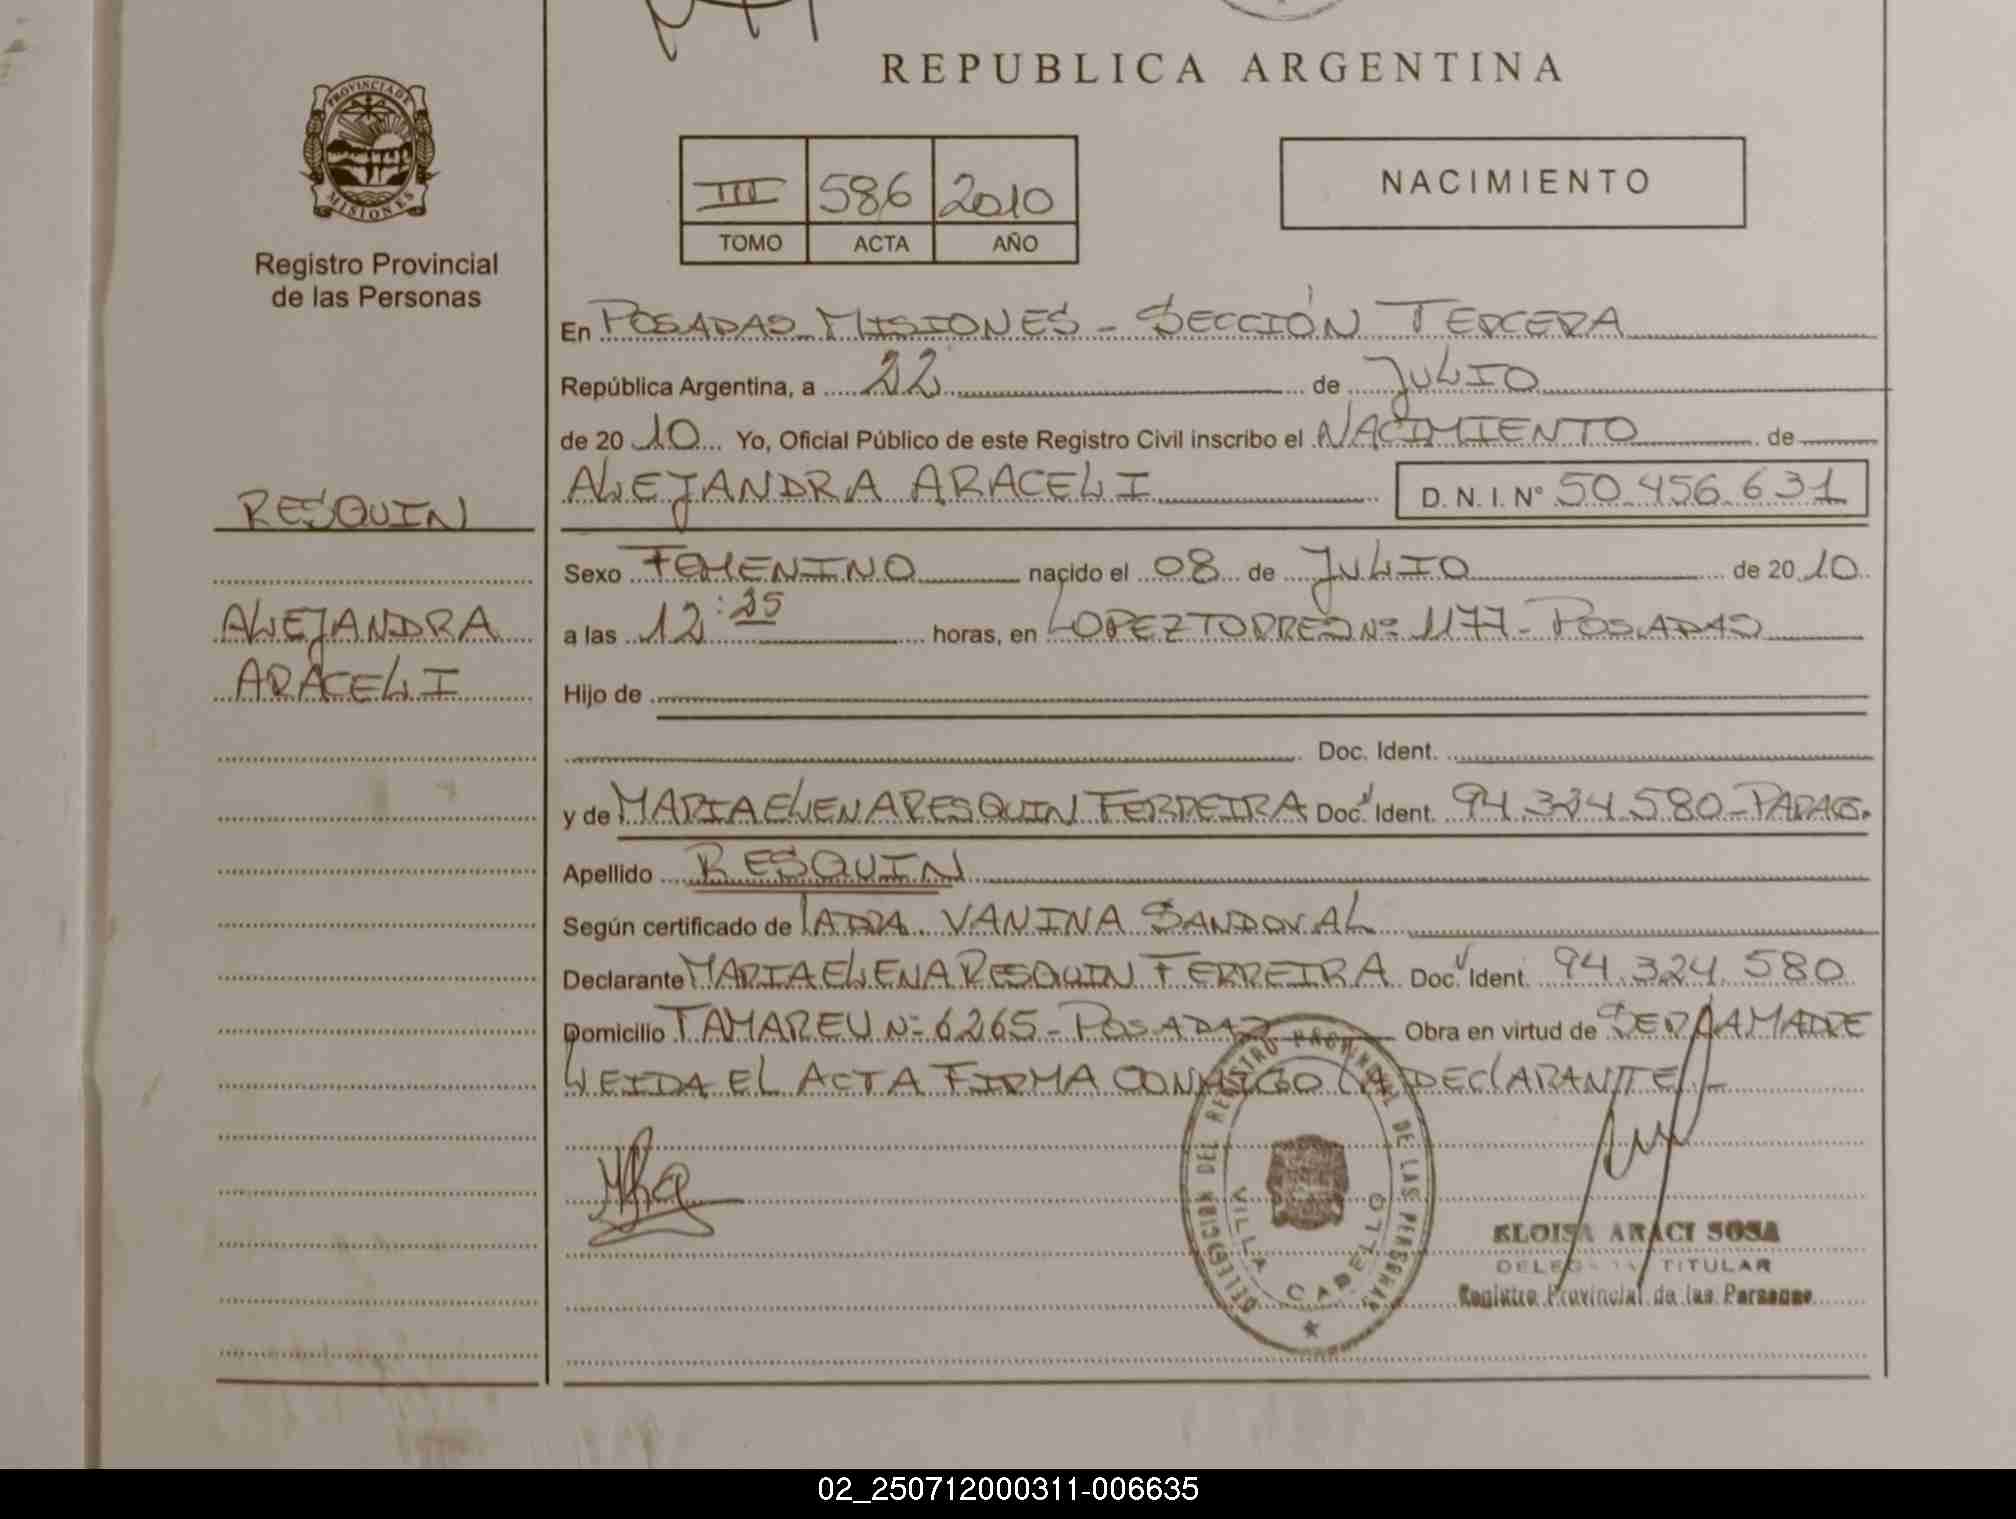 REPUBLICA ARGENTINA
PROVINCIA DE
MISIONES
Registro Provincial
de las Personas
III 586 2010
TOMO ACTA AÑO
NACIMIENTO
En POSADAS MISIONES - SECCIÓN TERCERA
República Argentina, a 22 de JULIO
de 20 10 Yo, Oficial Público de este Registro Civil inscribo el NACIMIENTO de
ALEJANDRA ARACELI D. N. I. N° 50.456.631
RESQUIN
ALEJANDRA
ARACELI
Sexo FEMENINO nacido el 08 de JULIO de 20 10
a las 12:25 horas, en LOPEZ TORRES Nº 1177 - POSADAS
Hijo de
Doc. Ident.
y de MARIA ELENA RESQUIN FERREIRA Doc. Ident. 94.324.580 - PARAG.
Apellido RESQUIN
Según certificado de LA DRA. VANINA SANDOVAL
Declarante MARIA ELENA RESQUIN FERREIRA Doc. Ident. 94.324.580
Domicilio TAMAREU Nº 6265 - POSADAS Obra en virtud de SER LA MADRE
LEIDA EL ACTA FIRMA CONMIGO LA DECLARANTE -
DELEGACION DEL REGISTRO PROVINCIAL DE LAS PERSONAS
VILLA CABELLO
ELOISA ARACI SOSA
TITULAR
Registro Provincial de las Personas
02_250712000311-006635